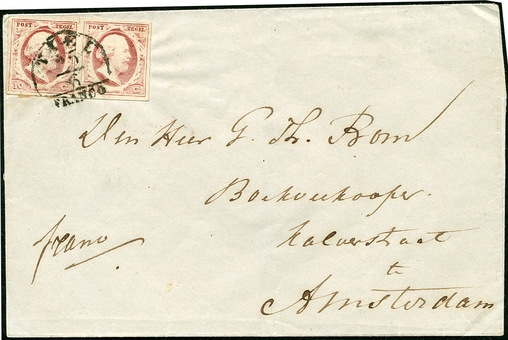 POST ZEGEL POST ZEGEL
FRANCO
Den Heer G. Th. Bom
Boekverkooper.
Kalverstraat
franco
te
Amsterdam